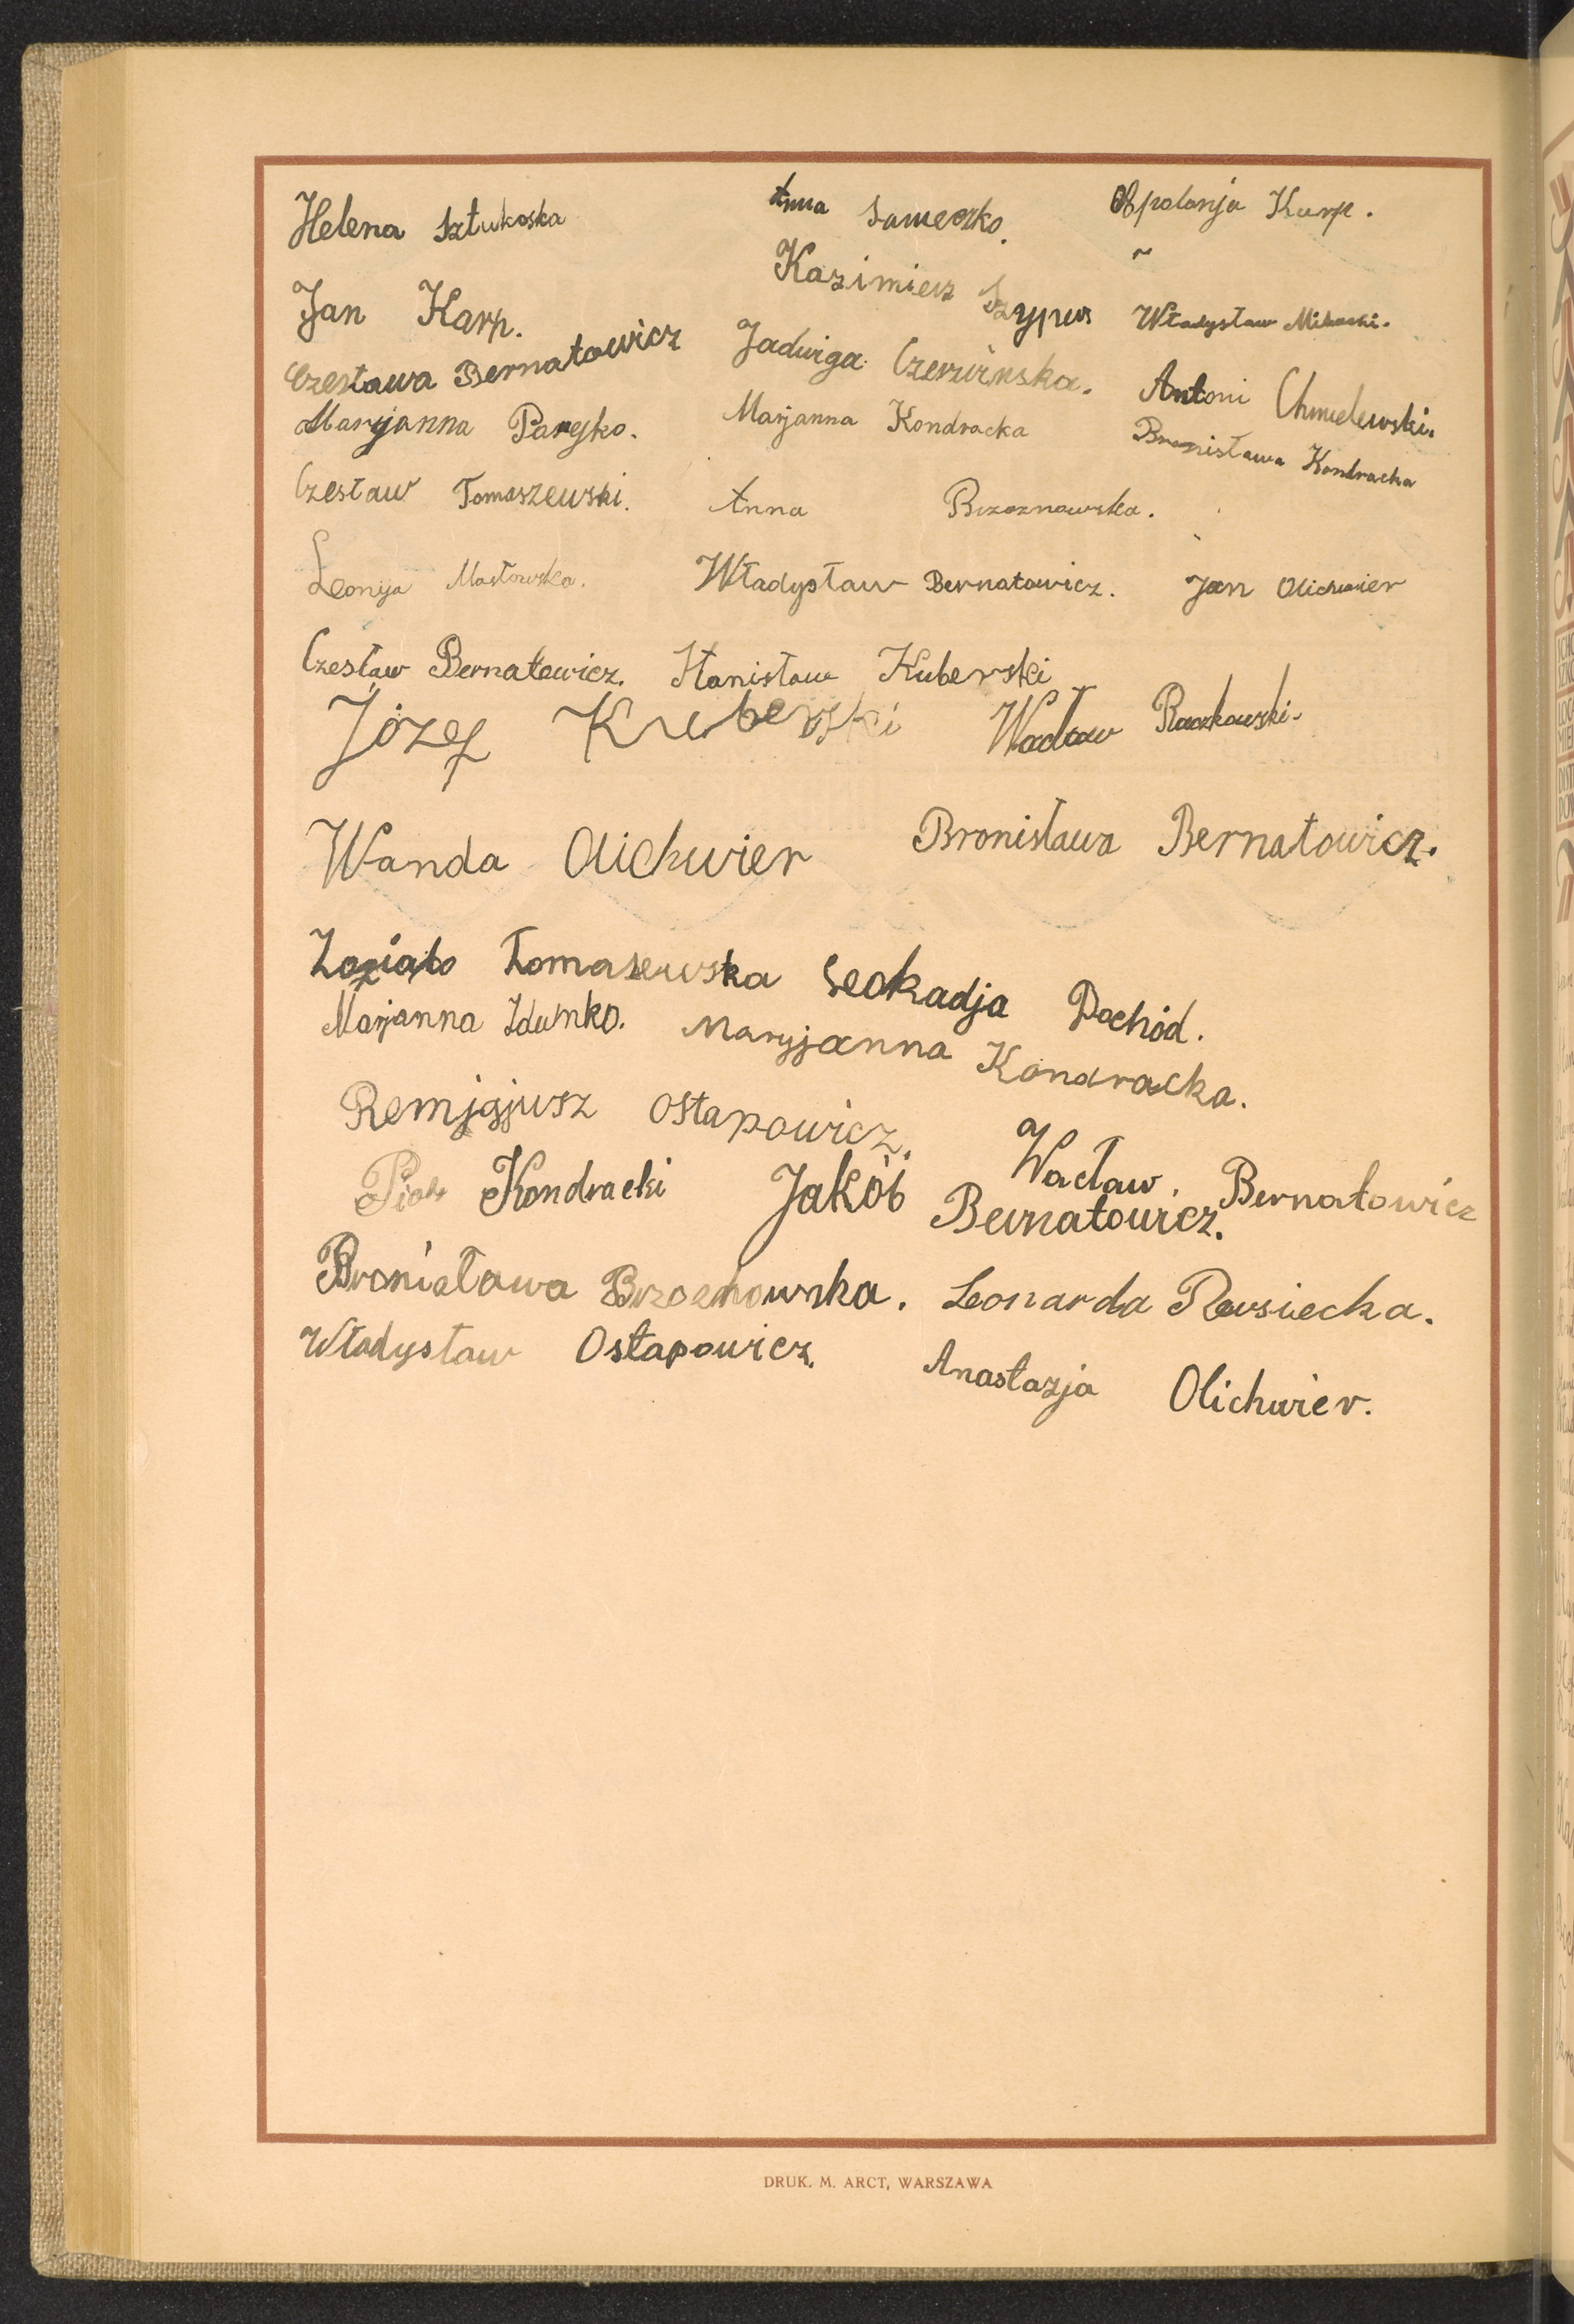 Helena Sztukoska Anna Sameczko. Appolonja Karp.
Jan Karp. Kazimierz Szypus Władysław Mikucki.
Czesława Bernatowicz Jadwiga Czerwińska. Antoni Chmielewski.
Maryjanna Parejko. Marjanna Kondracka Bronisława Kondracka
Czesław Tomaszewski. Anna Brzoznowska.
Leonja Masłowska. Władysław Bernatowicz. Jan Olichwier
Czesław Bernatowicz. Stanisław Kuberski
Józef Kuberski Wacław Raczkowski.
Wanda Olichwier Bronisława Bernatowicz.
Tomasewska Leokadja Pochód.
Marjanna Zdunko. Maryjanna Kondracka.
Remjgjusz Ostapowicz. Wacław. Bernatowicz
Piotr Kondracki Jakób Bernatowicz.
Bronisława Brzoznowska. Leonarda Rusiecka.
Władysław Ostapowicz. Anastazja Olichwier.
DRUK. M. ARCT, WARSZAWA